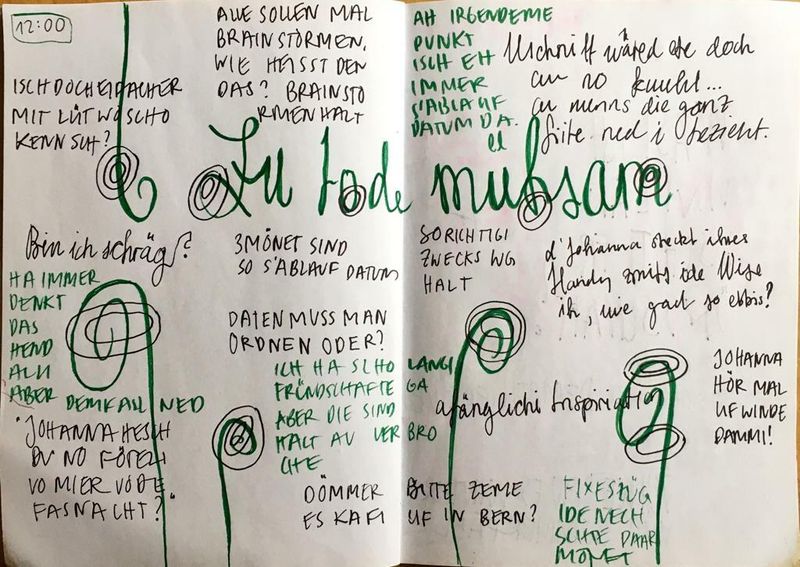 12:00
ALLE SOLLEN MAL
BRAINSTÖRMEN.
WIE HEISST DEN
DAS? BRAINSTO
RMEN HALT
ISCH DOCH EIFACHER
MIT LÜT WO SCHO
KENNSCH?
AH IRGENDEME
PUNKT
ISCH EH
IMMER
S'ABLAUF
DATUM DA.
doch
die ganz
ned i
Zu tode mühsam
Bin ich schräg?
HA IMMER
DENKT
DAS
HEND
ALLI
ABER
DEMFALL NED
3 MÖNET SIND
SO S'ABLAUF DATUM
DATEN MUSS MAN
ORDNEN ODER?
ICH HA SCHO
FRÜNDSCHAFTE
ABER DIE SIND
HALT AU
"JOHANNA HESCH
DU NO FÖTELI
VO MIER VO DE
FASNACHT?"
DÖMMER
ES KAFI
SO RICHTIGI
ZWECKS WG
HALT
d'Johanna steckt ihres
Handy ide Wise
ih, wie gaht so ebbis?
LANGI
afänglichi Inspiration
JOHANNA
HÖR MAL
UF WINDE
DAMMI!
BITTE ZEME
UF IN BERN?
FIXES ZÜG
IDE NECH
SCHTE PAAR
MONET